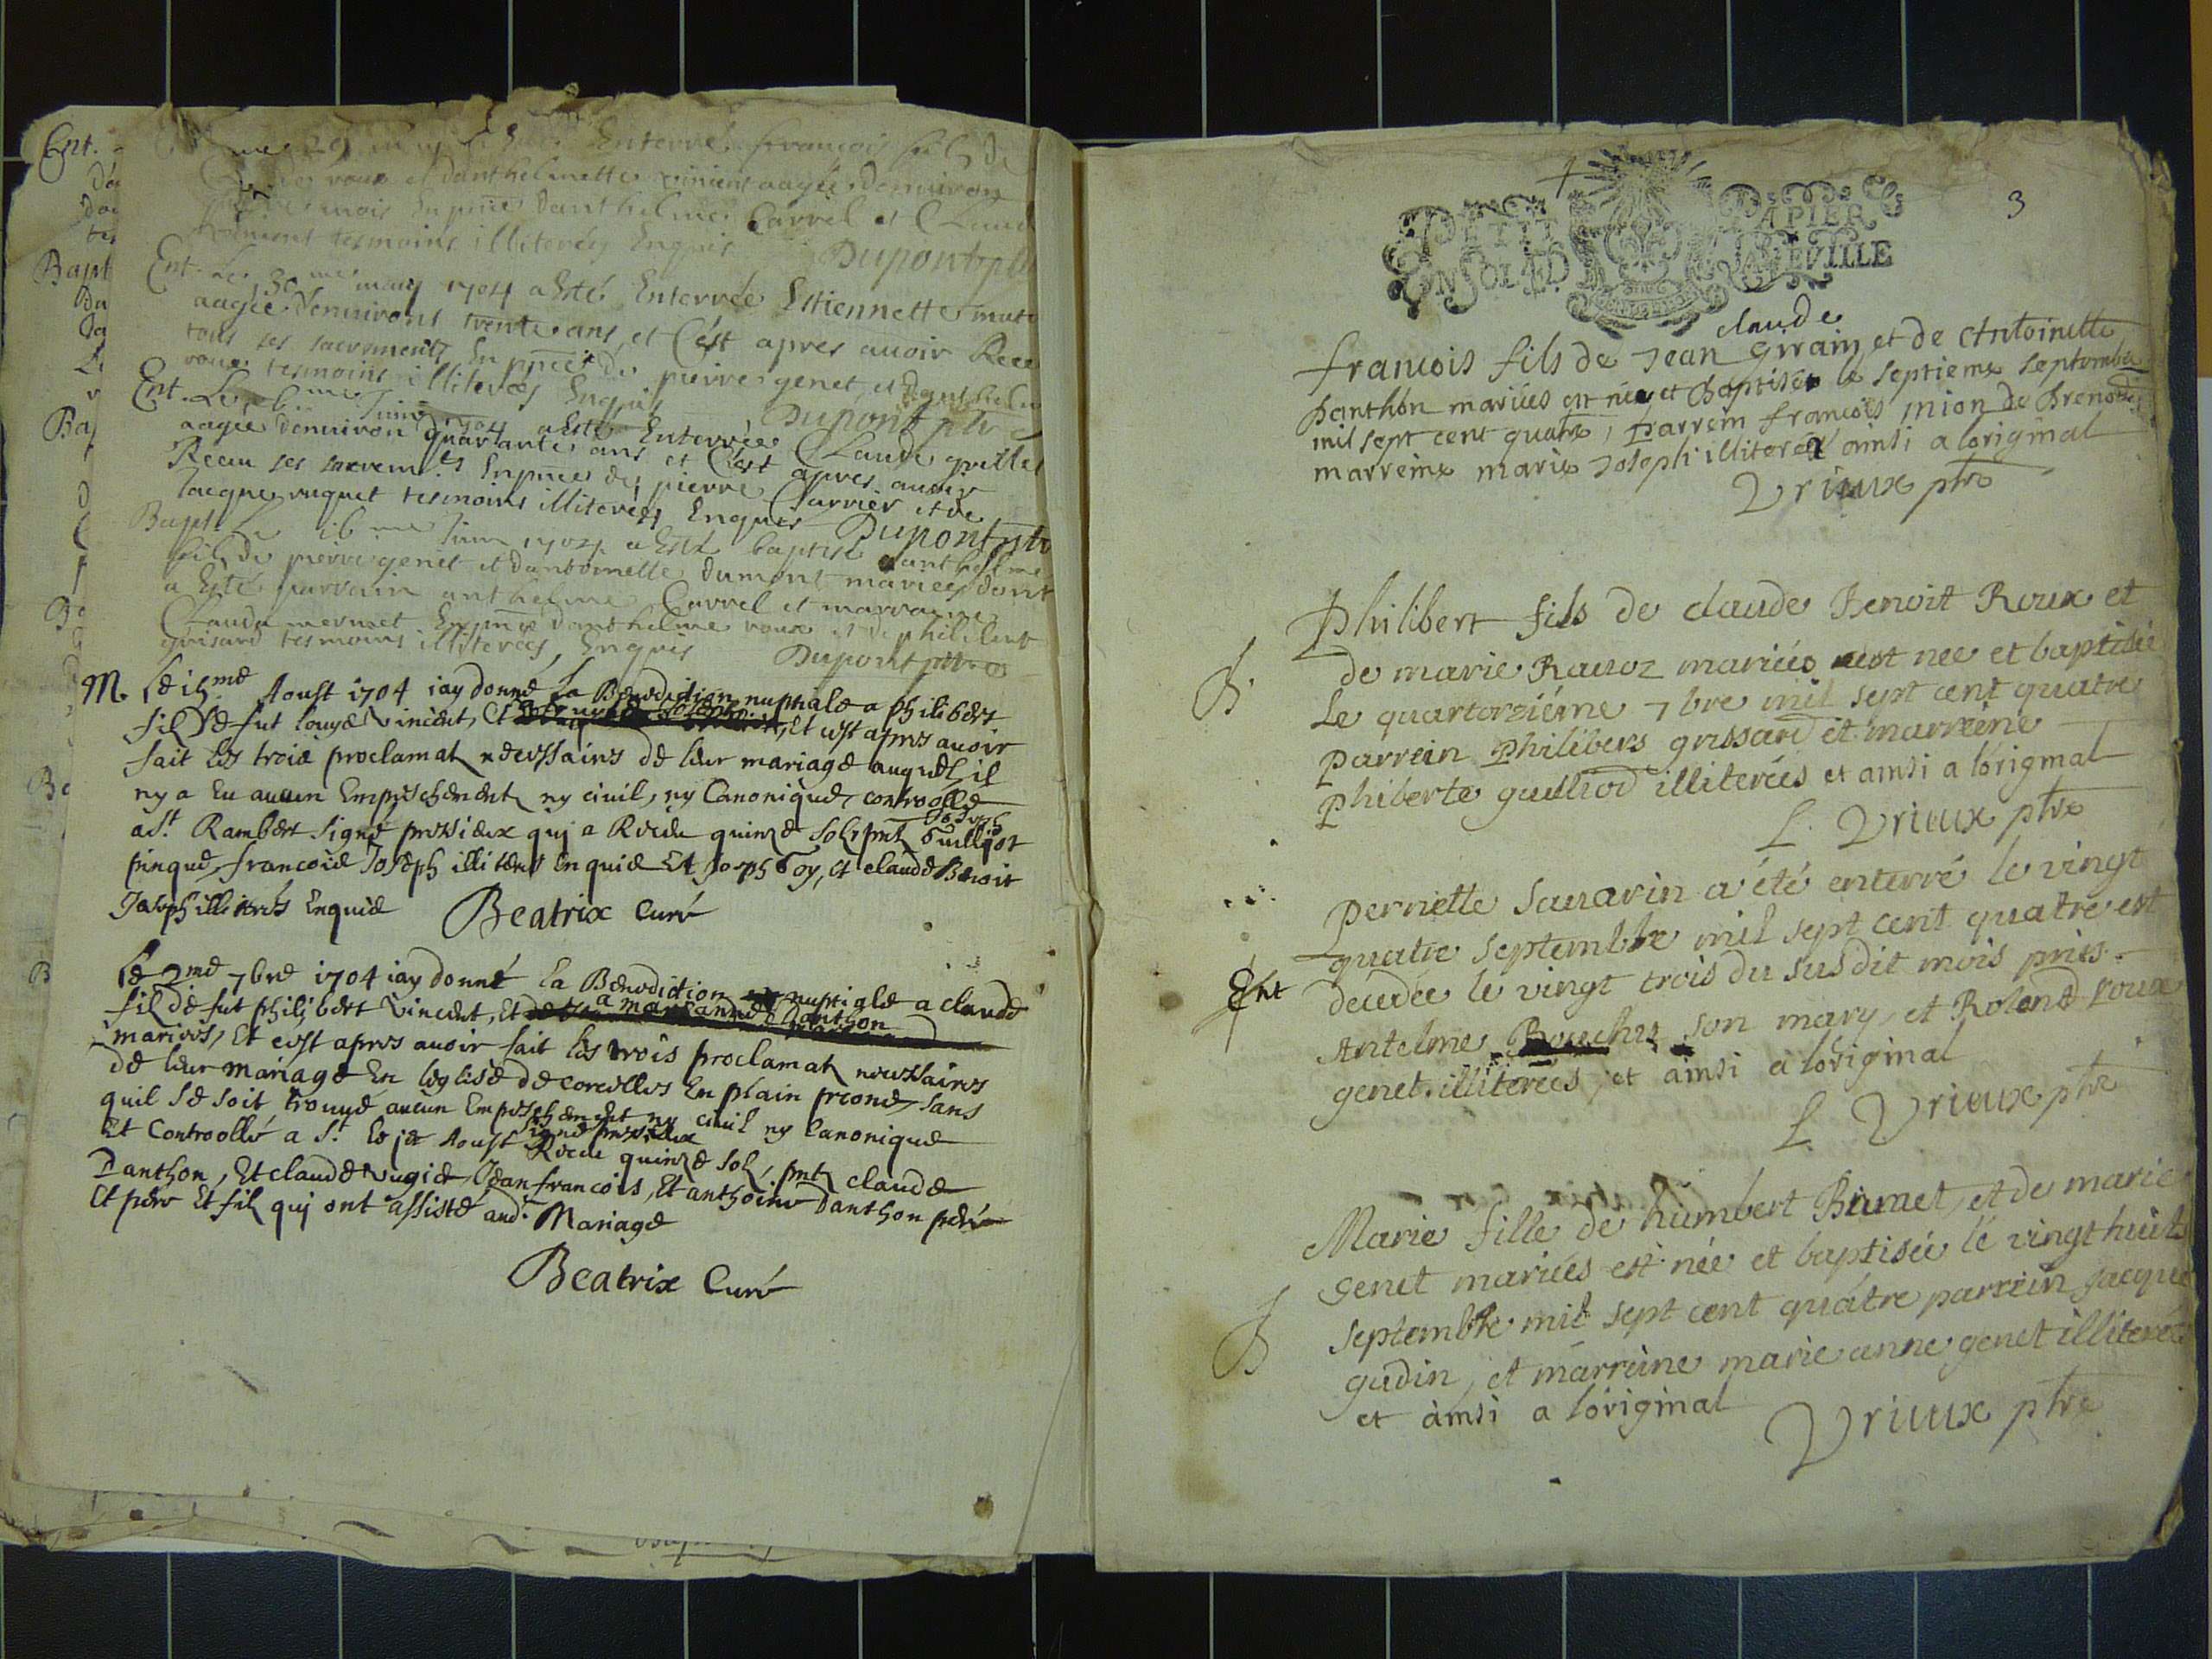 Ent.
Enterré francois fils de
roux et danthelmette vincent aagée denuiron
mois En pñce danthelme Carrel et Claud
tesmoins illiterés Enquis Dupont ptr
Ent. Le 30me may 1704 a Esté Enterrée Estiennette
aagée denuirons trente ans, et C'est apres auoir Receu
tous ses sacrements En pñce de pierre genet, et danthelme
roux tesmoins illiterés Enquis Dupont ptr
Ent. Le Juin 1704 a Esté Enterrée Claude
aagée denuiron quarante ans et C'est apres auoir
Receu ses sacremts En pñce de pierre Carrier et de
Jacque ruquet tesmoins illiterés Enquis Dupont ptr
Bapt. Le 16me Juin 1704 a Esté baptisé anthelme
fils de pierre genet et dantoinette dumont mariés dont
a Esté parrain anthelme Carrel et marraine
Clauda mermet En pñce danthelme roux et de philibert
grisard tesmoins illiterés, Enquis Dupont ptr
M. Le 15me Aoust 1704 iay donné La Benediction nuptiale a philibert
fil de fut Vincent, Et Et cest apres auoir
fait les trois proclamat necessaires de leur mariage auquel il
ny a Eu aucun Empeschement ny ciuil, ny Canonique, controollé
a St. Rambert signé pressieux qui a Receu quinze sols pnt Joseph Guilliot
pinque, francois Joseph illiterés enquis Et Joseph Goy, et claude Benoit
Joseph illiterés Enquis Beatrix Curé
Le 2me 7bre 1704 iay donné La Benediction nuptiale a claude
fil de fut philibert Vincent, Et a marianne danthon
mariés, Et cest apres auoir fait les trois proclamat necessaires
de leur mariage En leglise de corcelles En plain prosne, sans
quil se soit trouué aucun Empeschement ny ciuil ny Canonique
Et Controollé a St. le je Aoust signé pressieux Receu quinze sol, pnt claude
Danthon, Et claude Vugie, Jean francois, Et anthoine Danthon pere
Et pere Et fil qui ont assisté aud. Mariage
Beatrix Curé
3
PETIT PAPIER
UN SOL 4 D LA FEVILLE
claude
francois fils de Jean girain et de Antoinette
Danthon mariées est née et Baptisée le septieme septembre
mil sept cent quatre, parrem francois pion de Brenod
marreine marie Joseph illiterés ainsi a loriginal
Vrieux ptre
Philibert fils de claude Benoit Roux et
B. de marie Rauoz mariées est nee et baptisée
Le quartorziéme 7bre mil sept cent quatre
parrein Philibers grissard et marreine
Phiberte guilliod illiterées et ainsi a lóriginal
L. Vrieux ptre
Pernette Sauarin a été enterré le vingt
quatre septembre mil sept cent quatre est
Ent decedée le vingt trois du susdit mois pnts
Antelme Bouchis son mary, et Roland roux
genet. illiterées, et ainsi a lóriginal
L. Vrieux ptre
Marie fille de humbert Brunet, et de marie
Genet mariées est née et baptisée le vingt huit
B septembre mil sept cent quátre parrein Jacque
gudin, et marreine marie anne genet illiterés
et ainsi a lóriginal Vrieux ptre